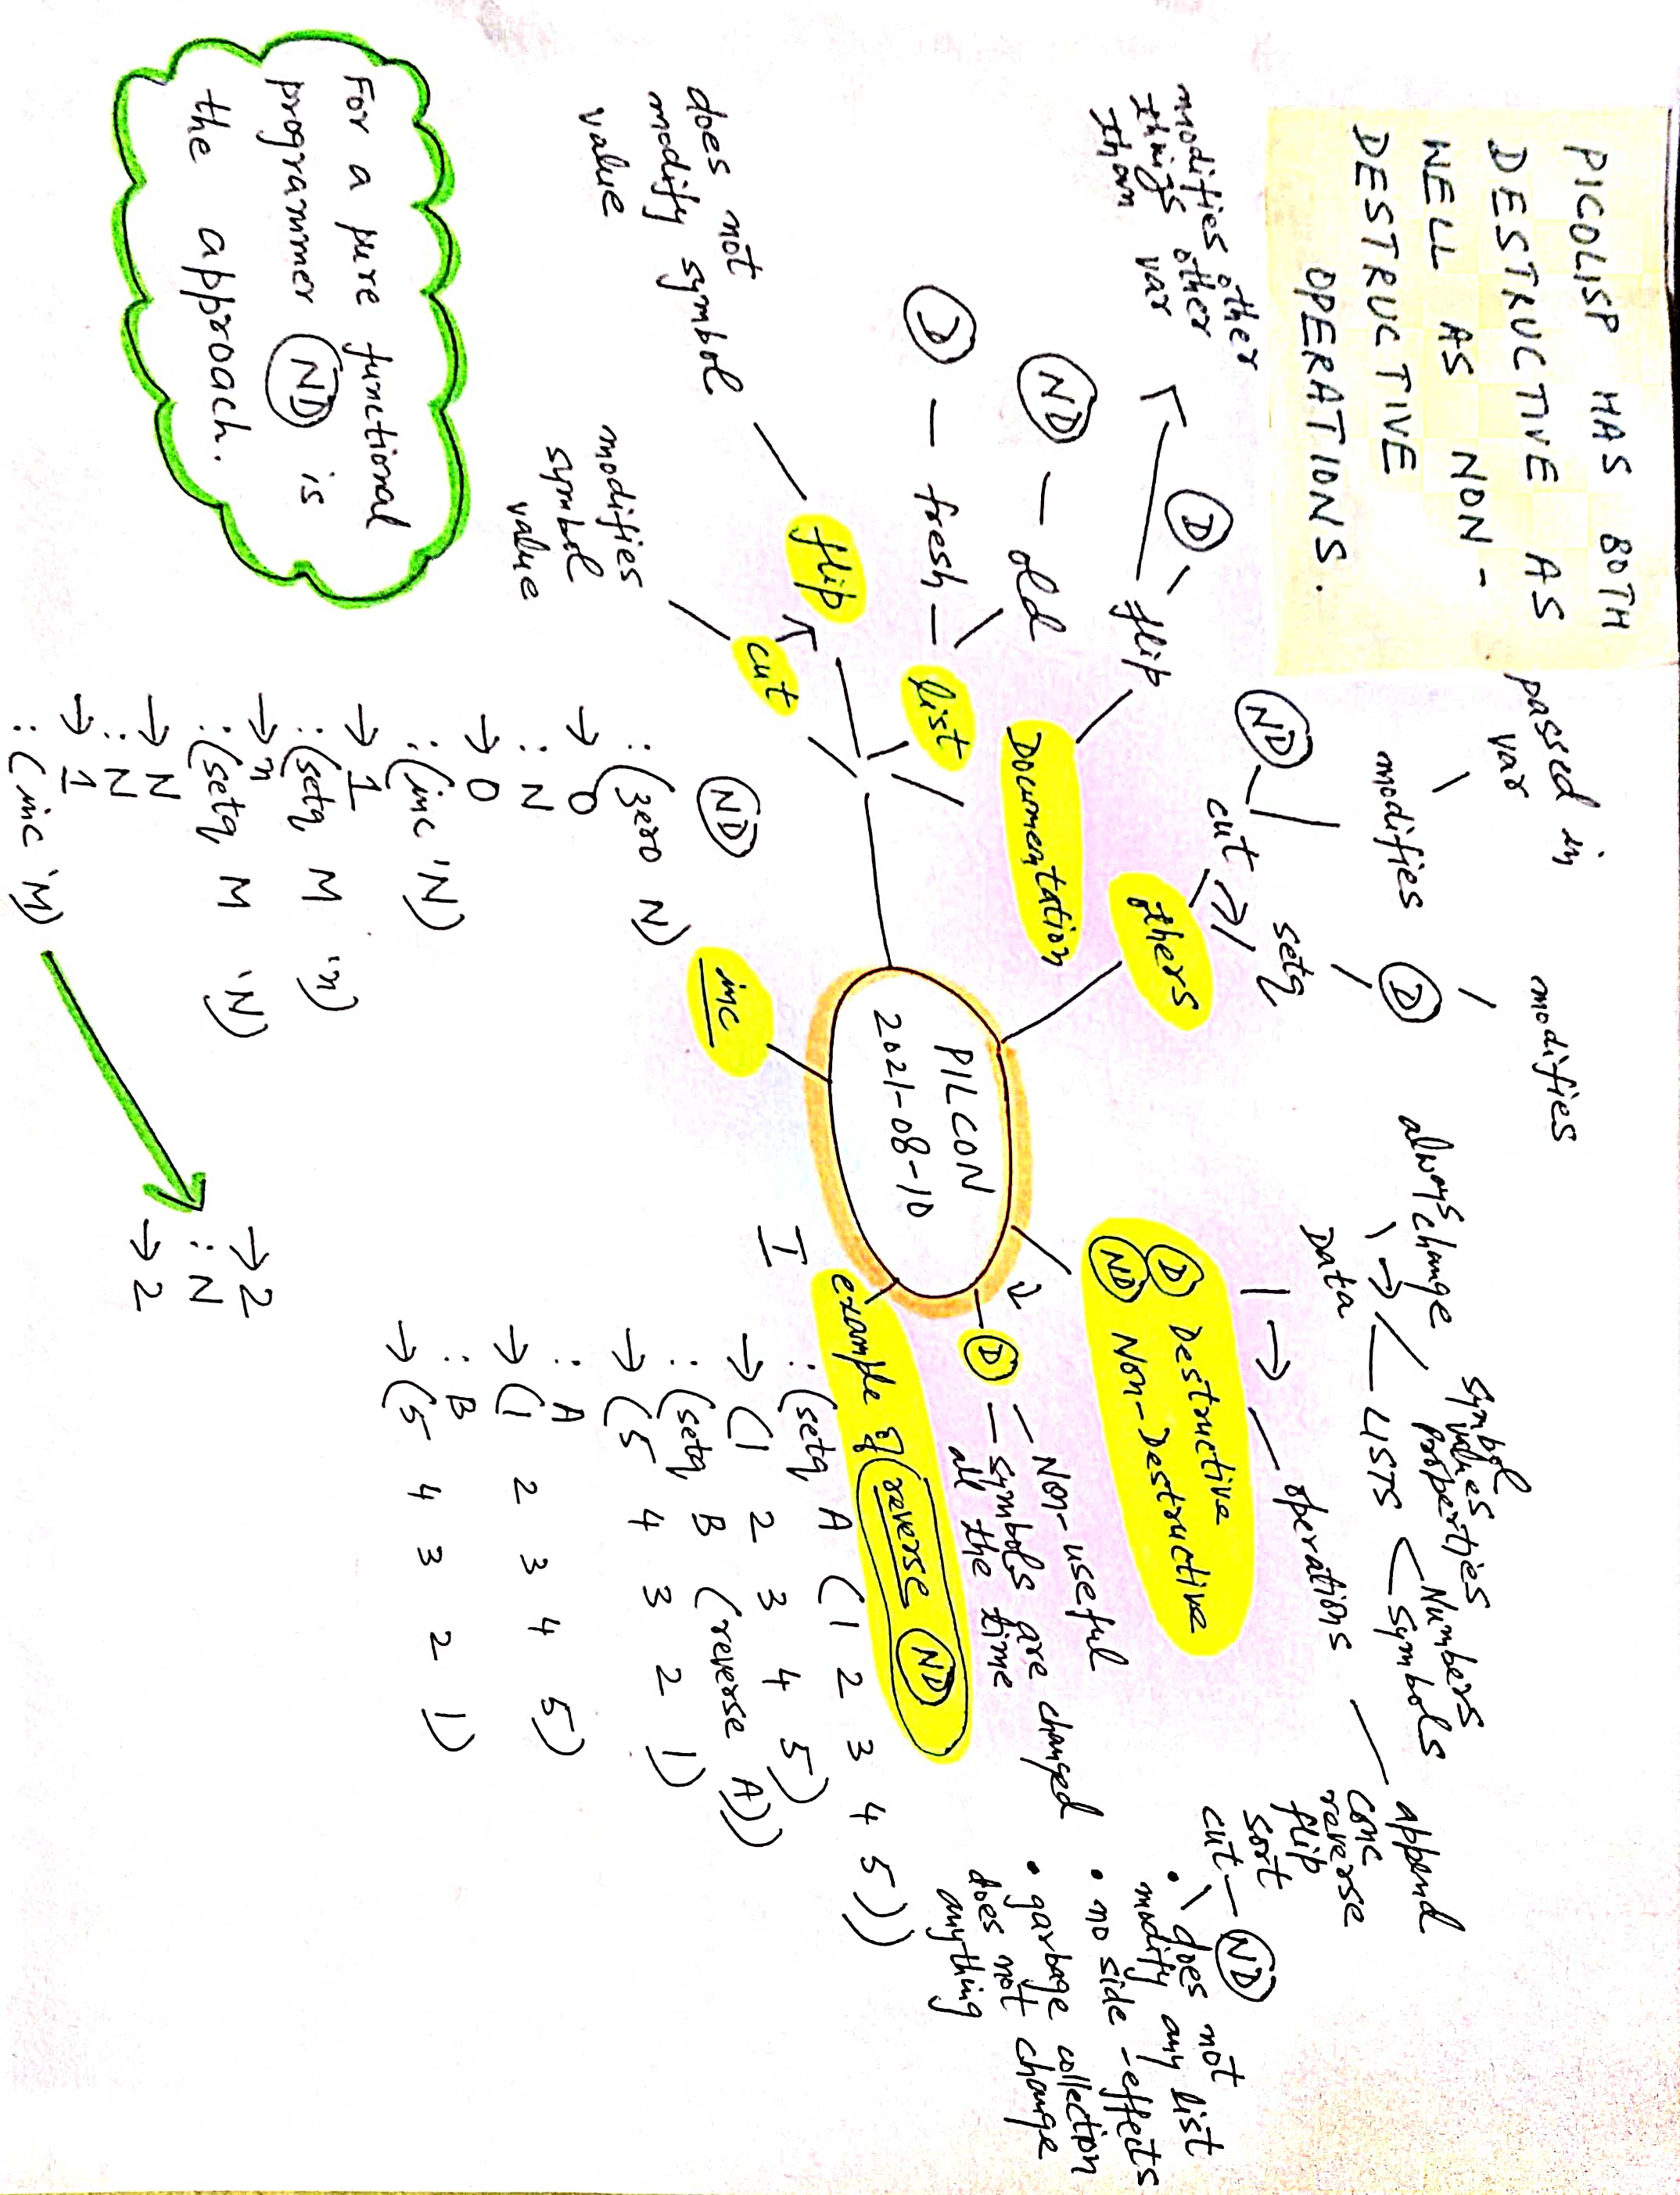 PICOLISP HAS BOTH
DESTRUCTIVE AS
WELL AS NON-
DESTRUCTIVE
OPERATIONS.
passed in
var
modifies
modifies
D
setq
ND
cut
others
Documentation
D
flip
modifies other
things other
than var
ND - old
D - fresh
list
flip
does not
modify symbol
value
cut
modifies
symbol
value
For a pure functional
programmer ND is
the approach.
PILCON
2021-08-10
D Destructive
ND Non-Destructive
always change
Data
symbol
values
properties
LISTS
Numbers
symbols
operations
append
conc
reverse
flip
sort
cut - ND
• does not
modify any list
• no side-effects
• garbage collection
does not change
anything
D
- Non-useful
- symbols are changed
all the time
I
example of reverse ND
: (setq A (1 2 3 4 5))
→ (1 2 3 4 5)
: (setq B (reverse A))
→ (5 4 3 2 1)
: A
→ (1 2 3 4 5)
: B
→ (5 4 3 2 1)
inc
ND
: (zero N)
→ 0
: N
→ 0
: (inc 'N)
→ 1
: (setq M 'n)
→ n
: (setq M 'N)
→ N
: N
→ 1
: (inc 'M)
→ 2
: N
→ 2